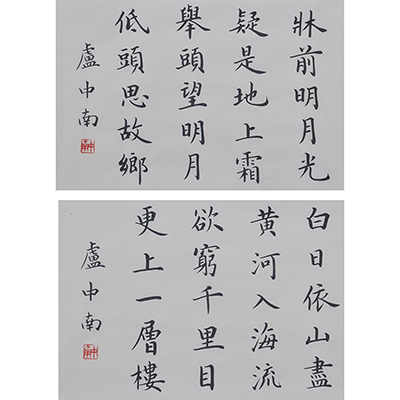 牀前明月光
疑是地上霜
舉頭望明月
低頭思故鄉
盧中南
白日依山盡
黄河入海流
欲窮千里目
更上一層樓
盧中南